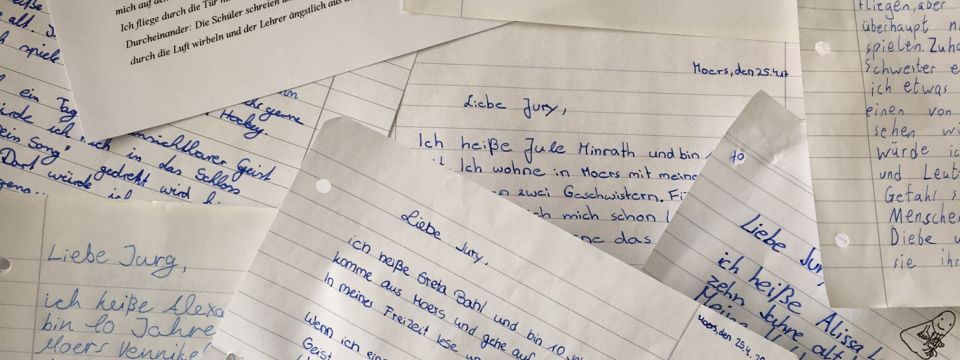 mich auf den
Ich fliege durch die Tür
Durcheinander: Die Schüler schreien
durch die Luft wirbeln und der Lehrer ängstlich aus
alt.
spiele
ein Tag
gerne
Hockey.
unsichtbarer Geist
würde ich in das Schloss
ein Song
gedreht wird
Dort würde ich
Liebe Jurg,
ich heiße Alexa
bin 10 Jahre
Moers Vennike
Moers, den 25.4.17
Liebe Jury,
Ich heiße Jule Minrath und bin
Ich wohne in Moers mit meine
zwei Geschwistern. Fü
ich mich schon
das
Liebe Jury,
ich heiße Greta Bahl und bin 10
komme aus Moers und gehe auf
In meiner Freizeit lese
Wenn ich ein
Geist
Moers, den 25.4.
10
Liebe Jury
ich heiße Alissa
zehn Jahre alt
Meine
fliegen, aber
überhaupt
spielen. Zuha
Schwester e
ich etwas
einen von
sehen
würde ic
und Leut
Gefahr s
Menschen
Diebe u
sie ihr